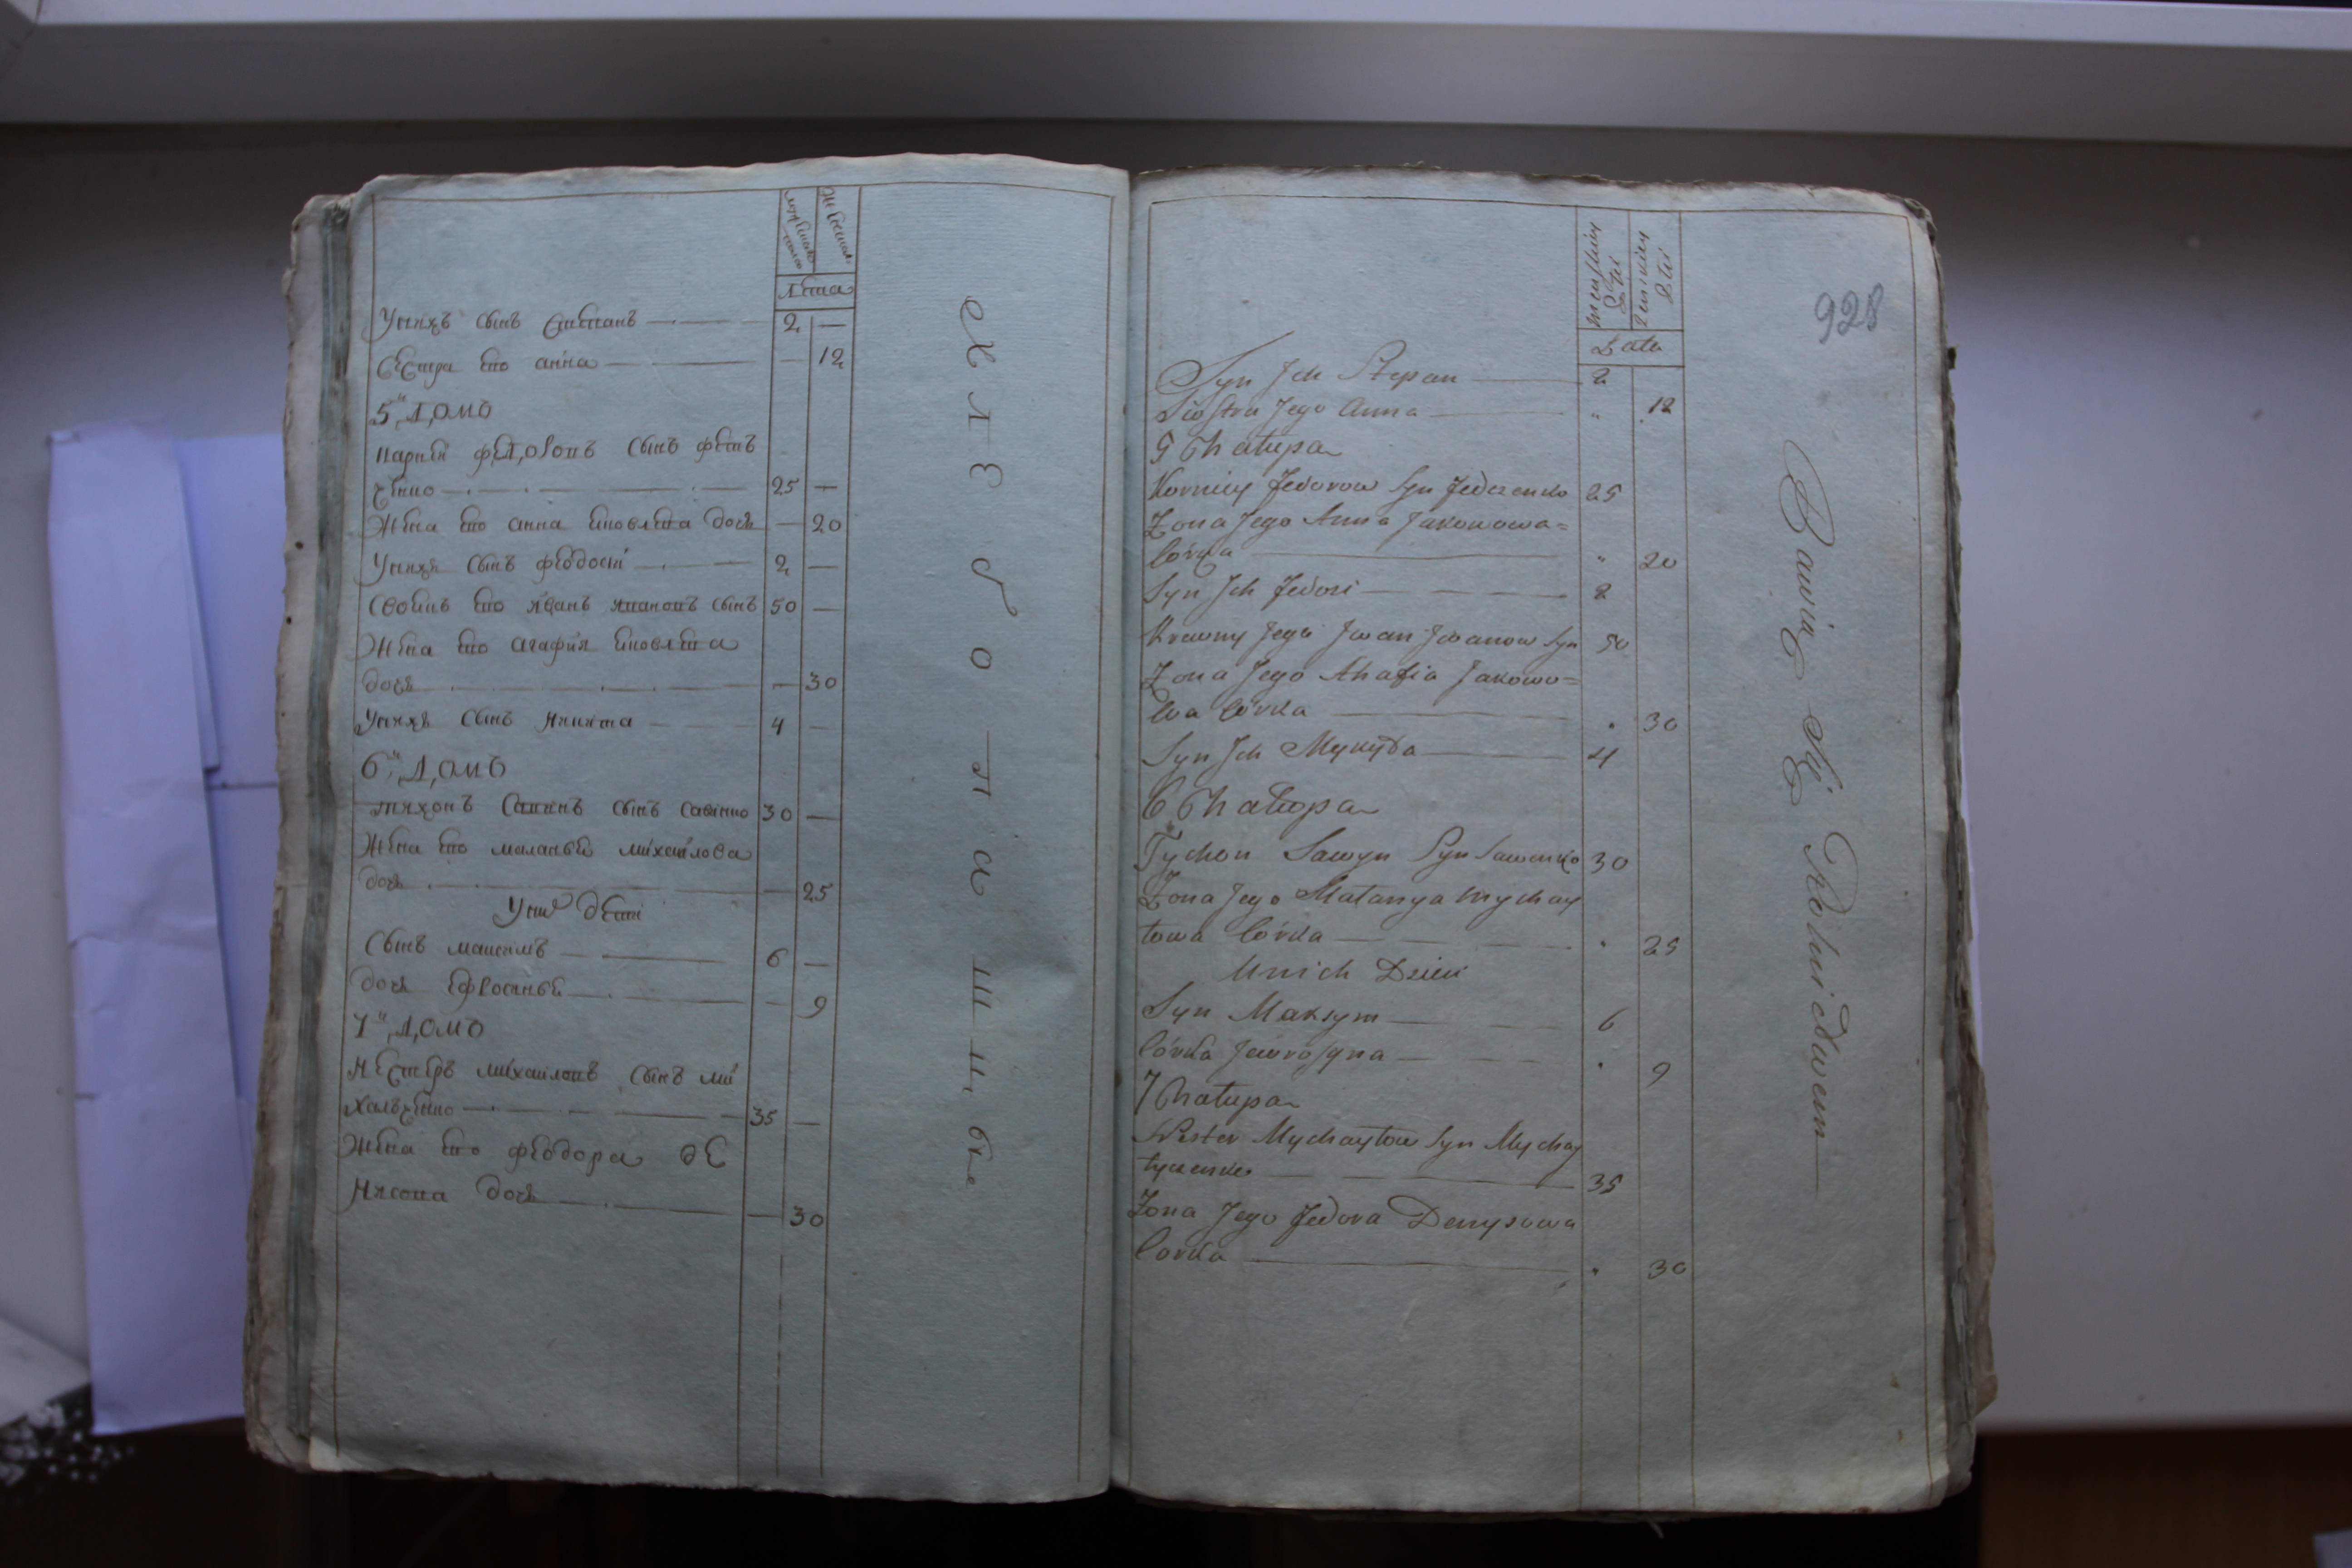 Лѣта
Унихъ сынъ Степанъ 2 —
Сестра его анна — 12
5й Домъ
Карней федоровъ сынъ федь
ченко 25 —
Жена его анна яковлева дочь — 20
Унихъ сынъ феодосій 2 —
Своякъ его иванъ ивановъ сынъ 50 —
Жена его агафия яковлева
дочь — 30
Унихъ сынъ никита 4 —
6й Домъ
тихонъ Савинъ сынъ савенко 30 —
Жена его маланья михайлова
дочь — 25
Унихъ дети
Сынъ максимъ 6 —
дочь Ефросинья — 9
7й Домъ
Нестеръ михайловъ сынъ ми
хальченко 35 —
Жена его феодора де
нисова дочь — 30
Хлебопашцы
928
Męskiey Płci
Żeńskiey Płci
Lata
Syn Ich Stepan 2
Siostra Jego Anna " 12
5 Chałupa
Korniey Fedorow Syn Fedczenko 25
Żona Jego Anna Jakowowa=
Córka " 20
Syn Ich Fedosi 2
Krewny Jego Iwan Iwanow Syn 50
Żona Jego Ahafia Jakowo=
wa Córka " 30
Syn Ich Mykyta 4
6 Chałupa
Tychon Sawyn Syn Sawenko 30
Żona Jego Małanya Mychay
łowa Córka " 25
U nich Dzieci
Syn Maksym 6
Córka Jewrosyna " 9
7 Chałupa
Nester Mychayłow Syn Mychay
łyczenko 35
Żona Jego Fedora Denysowa
Corka " 30
Bawią Się Rolnictwem